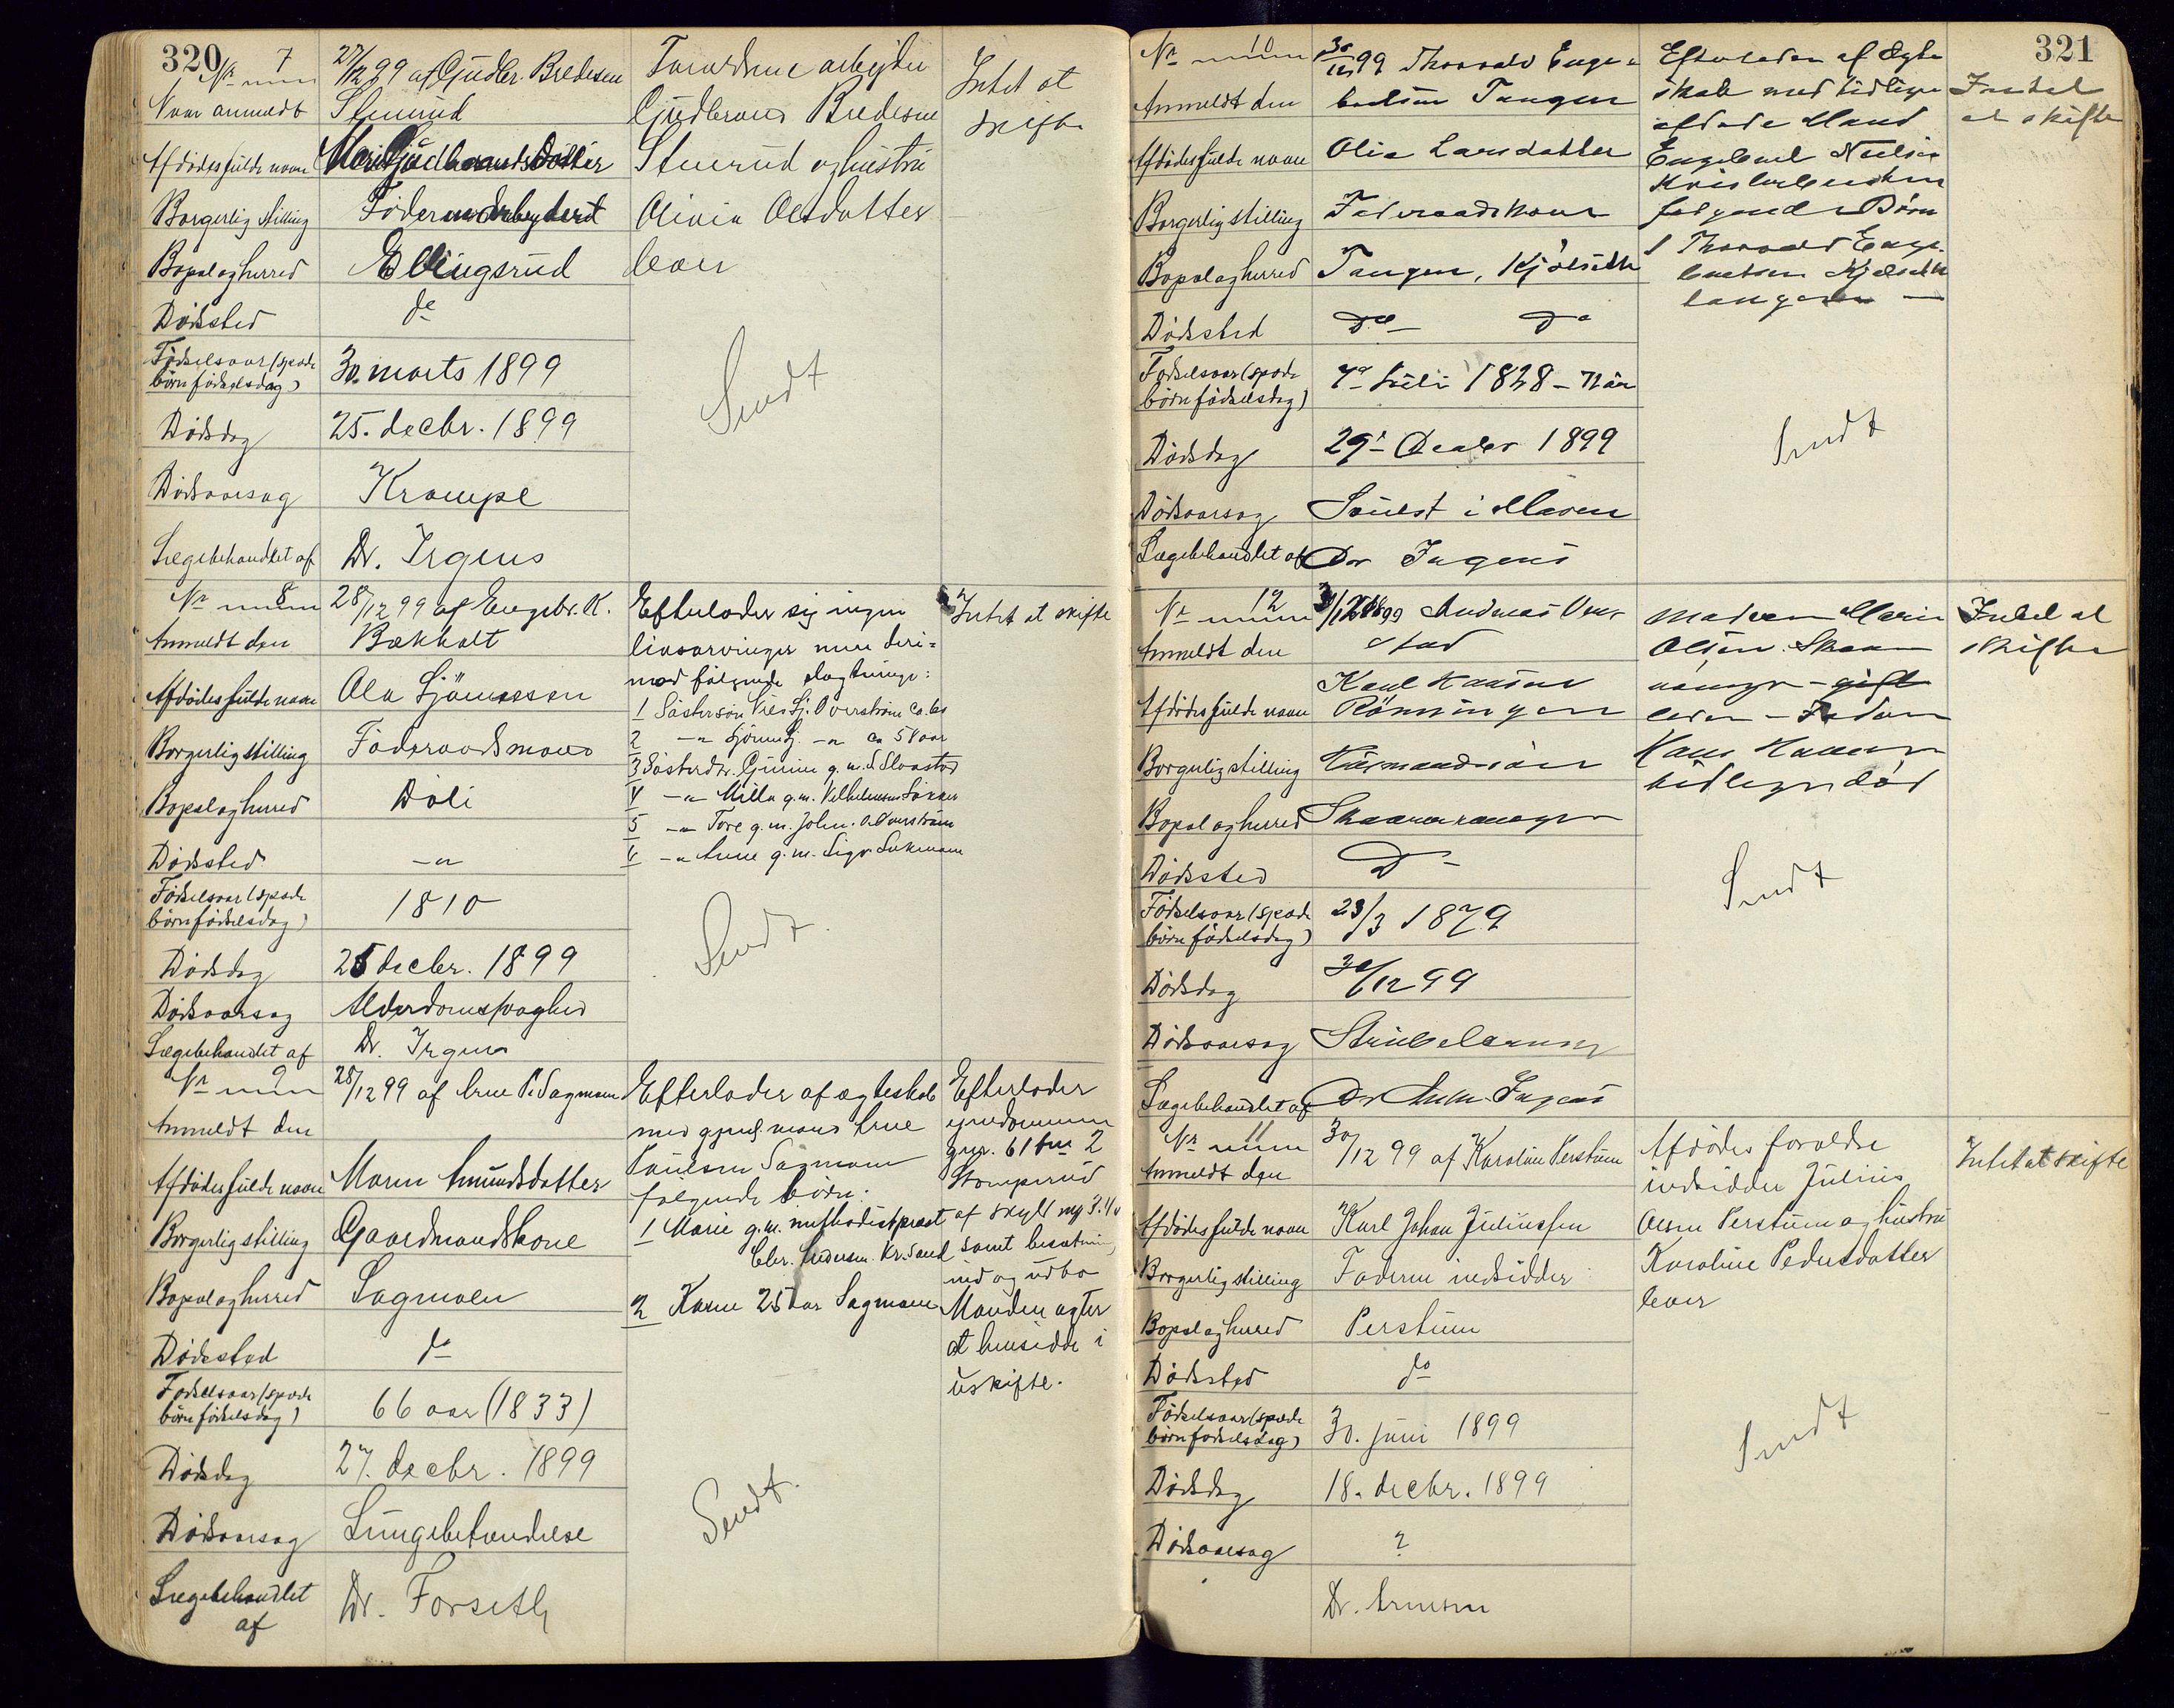 320
Nr 7
Naar anmeldt
27/12 99 af Gudbr. Bredesen
Stenrud
Afdødes fulde navn Mari Gudbrandsdatter
Borgerlig stilling Faderen arbeider
Bopæl og herred Ellingsrud
Dødssted do
Fødselsaar (spæde
børn fødselsdag) 30. marts 1899
Dødsdag 25. decbr. 1899
Dødsaarsag Krampe
Lægebehandlet af Dr. Irgens
Forældrene arbeider
Gudbrand Bredesen
Stenrud og hustru
Olivia Olsdatter
lever
Sendt
Intet at
skifte
Nr 8
Anmeldt den
28/12 99 af Engebr. K.
Bækholt
Afdødes fulde navn Ole
Borgerlig stilling Føderaadsmand
Bopæl og herred Döli
Dødssted -"-
Fødselsaar (spæde
børn fødselsdag) 1810
Dødsdag 25 decbr. 1899
Dødsaarsag Alderdomssvaghed
Lægebehandlet af Dr. Irgens
Efterlader sig ingen
livsarvinger men deri=
mod følgende slægtninge:
1 Søstersøn Overström ca. 60
2 -"- -"- ca 58 aar
3 Søsterdr. g. m.
4 -"- Milla g. m.
5 -"- Tore g. m. John. O. Overström
6 -"- Anne g. m.
Sendt
Intet at skifte
Nr 9
Anmeldt den
28/12 99 af Arne P. Sagmoen
Afdødes fulde navn Maren Amundsdatter
Borgerlig stilling Gaardmandskone
Bopæl og herred Sagmoen
Dødssted do
Fødselsaar (spæde
børn fødselsdag) 66 aar (1833)
Dødsdag 27. decbr. 1899
Dødsaarsag Lungebetændelse
Lægebehandlet
af
Dr. Forseth
Efterlader af ægteskab
med gjenl. mand Arne
Paulsen Sagmoen
følgende børn:
1 Marie g. m. methodistpræst
Chr. Andersen. Kr.Sand
2 Karen 25 aar Sagmoen
Sendt.
Efterlader
eiendommen
gnr. 61 bnr 2
Stomperud
af skyld
samt besætning
ind og udbo
Manden agter
at hensidde i
uskifte.
321
Nr 10
Anmeldt den
30/12 99 Thorvald Enge=
bretsen Tangen
Afdødes fulde navn Olia Larsdatter
Borgerlig stilling Føderaadskone
Bopæl og herred Tangen, Kjölseth
Dødssted do do
Fødselsaar (spæde
børn fødselsdag) 7de Juli 1828 - 72 aar
Dødsdag 29 Decbr 1899
Dødsaarsag i Maven
Lægebehandlet af Dr Irgens
Efterlader af Ægte
skab med tidligere
afdøde Mand
Engebret Nielsen
følgende Børn
1 Thorvald Enge=
bretsen Kjölseth
tangen
Sendt
Intet
at skifte
Nr 12
Anmeldt den
31/12 1899 Andreas Over
stad
Afdødes fulde navn
Karl Hansen
Rönningen
Borgerlig stilling Husmandssön
Bopæl og herred
Dødssted Do
Fødselsaar (spæde
børn fødselsdag) 23/3 1879
Dødsdag 30/12 99
Dødsaarsag Strubetæring
Lægebehandlet af Dr Irgens
Moderen Marie
Olsen
lever - Faderen
Hans Hansen
tidligere död
Sendt
Intet at
skifte
Nr 11
Anmeldt den
30/12 99 af Karoline Perstuen
Afdødes fulde navn Karl Johan Juliussen
Borgerlig stilling Faderen indsidder
Bopæl og herred Perstuen
Dødssted do
Fødselsaar (spæde
børn fødselsdag) 30. juni 1899
Dødsdag 18. decbr. 1899
Dødsaarsag ?
Dr. Arnesen
Afdødes forældre
indsidder Julius
Olsen Perstuen og hustru
Karoline Pedersdatter
lever
Sendt
Intet at skifte